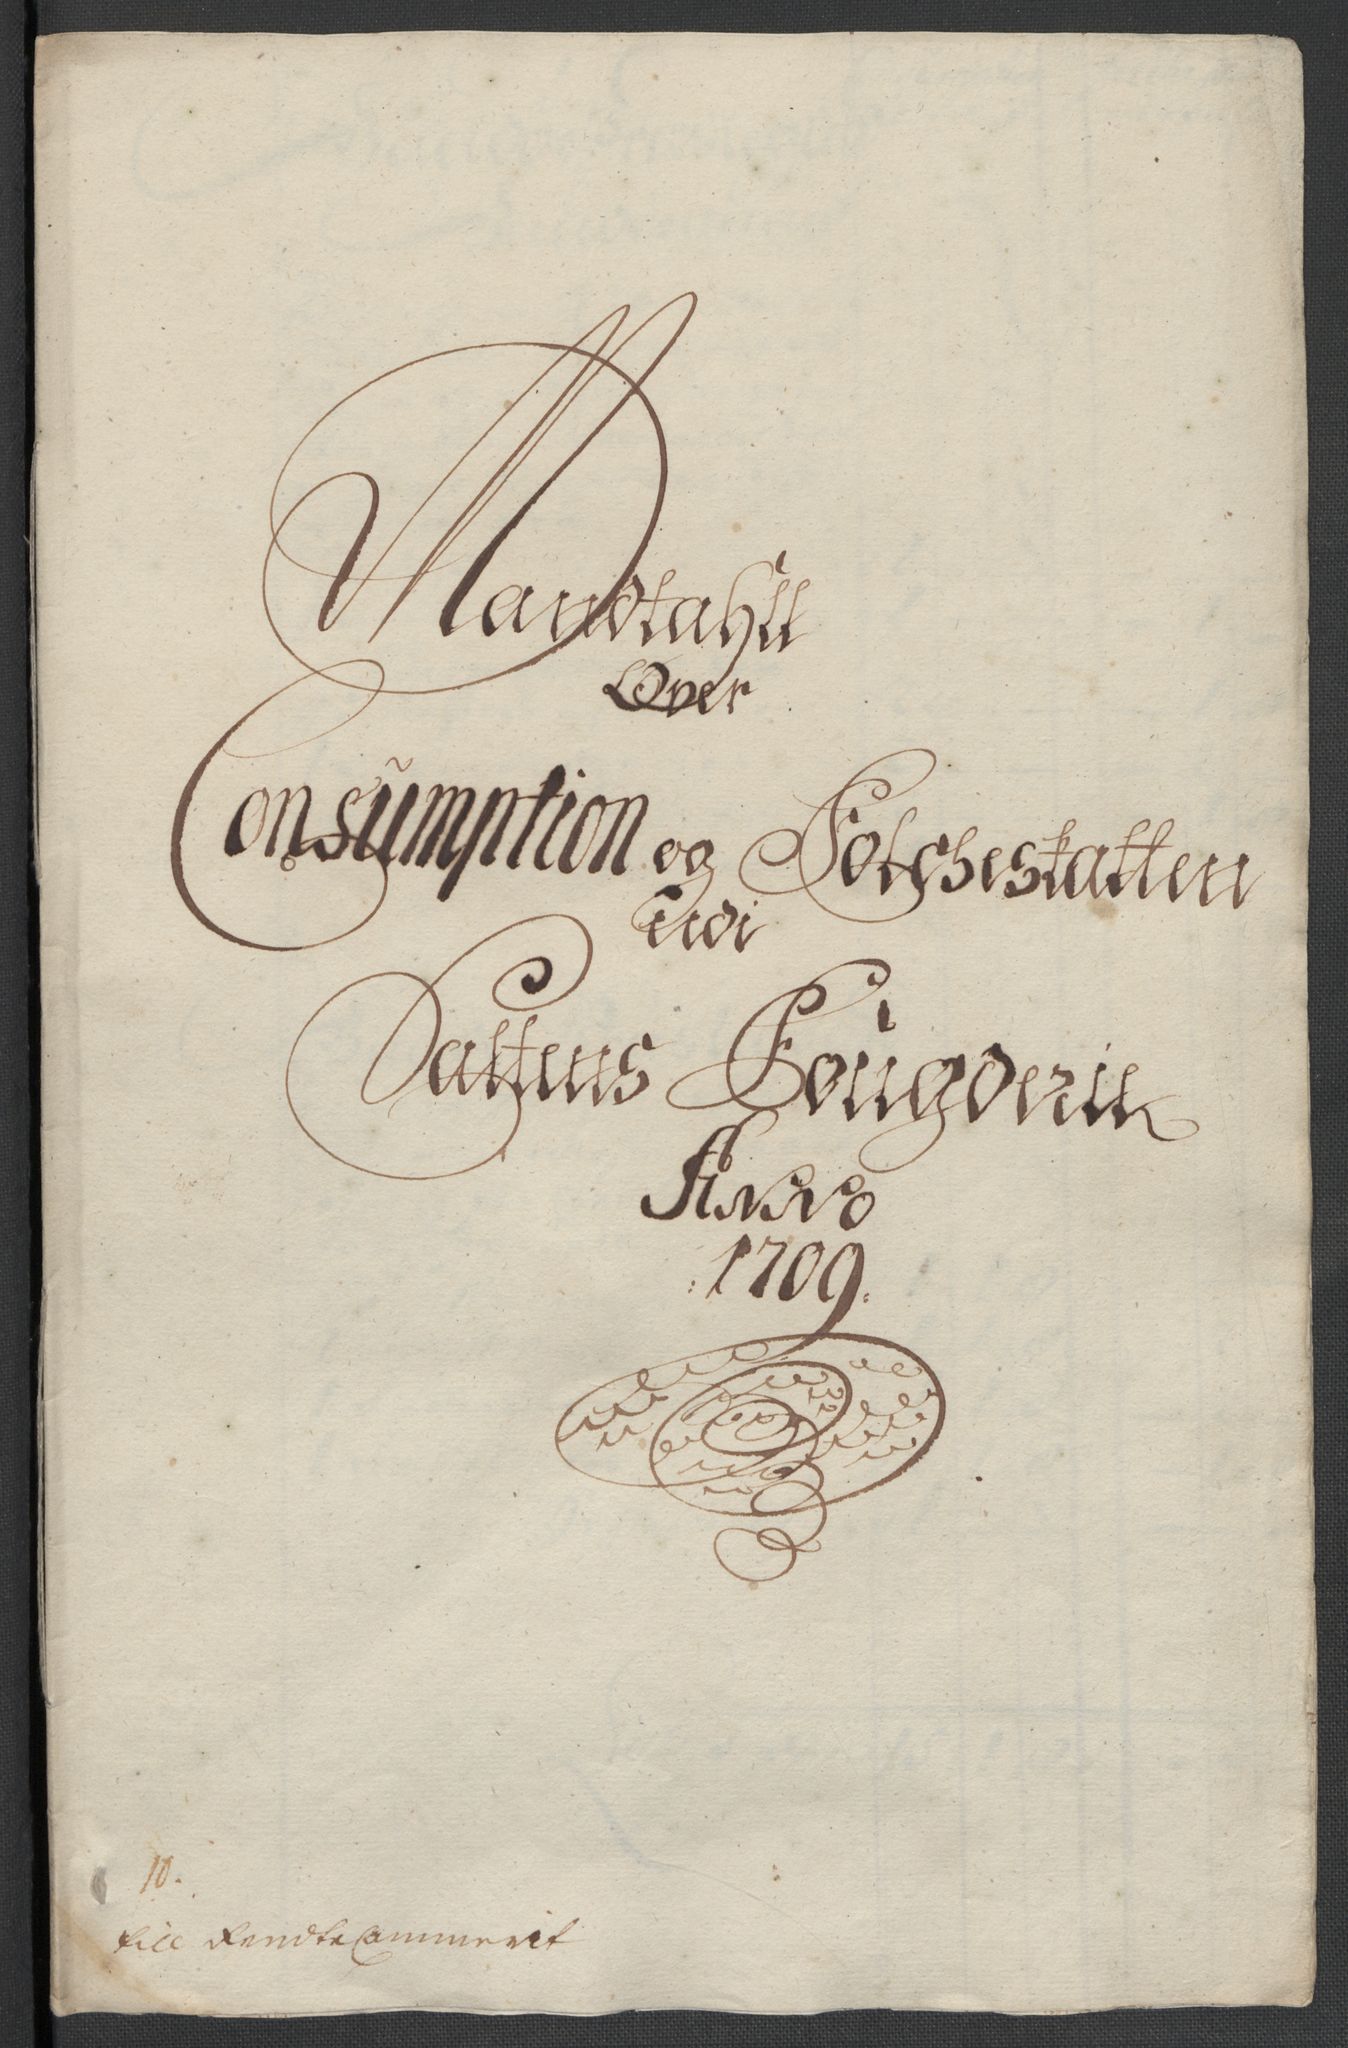 Mandtahll
Over
Consumption og Folcheskatten
udi
Saltens Fougderie
Anno
1709.
10.
till RendteCammerit